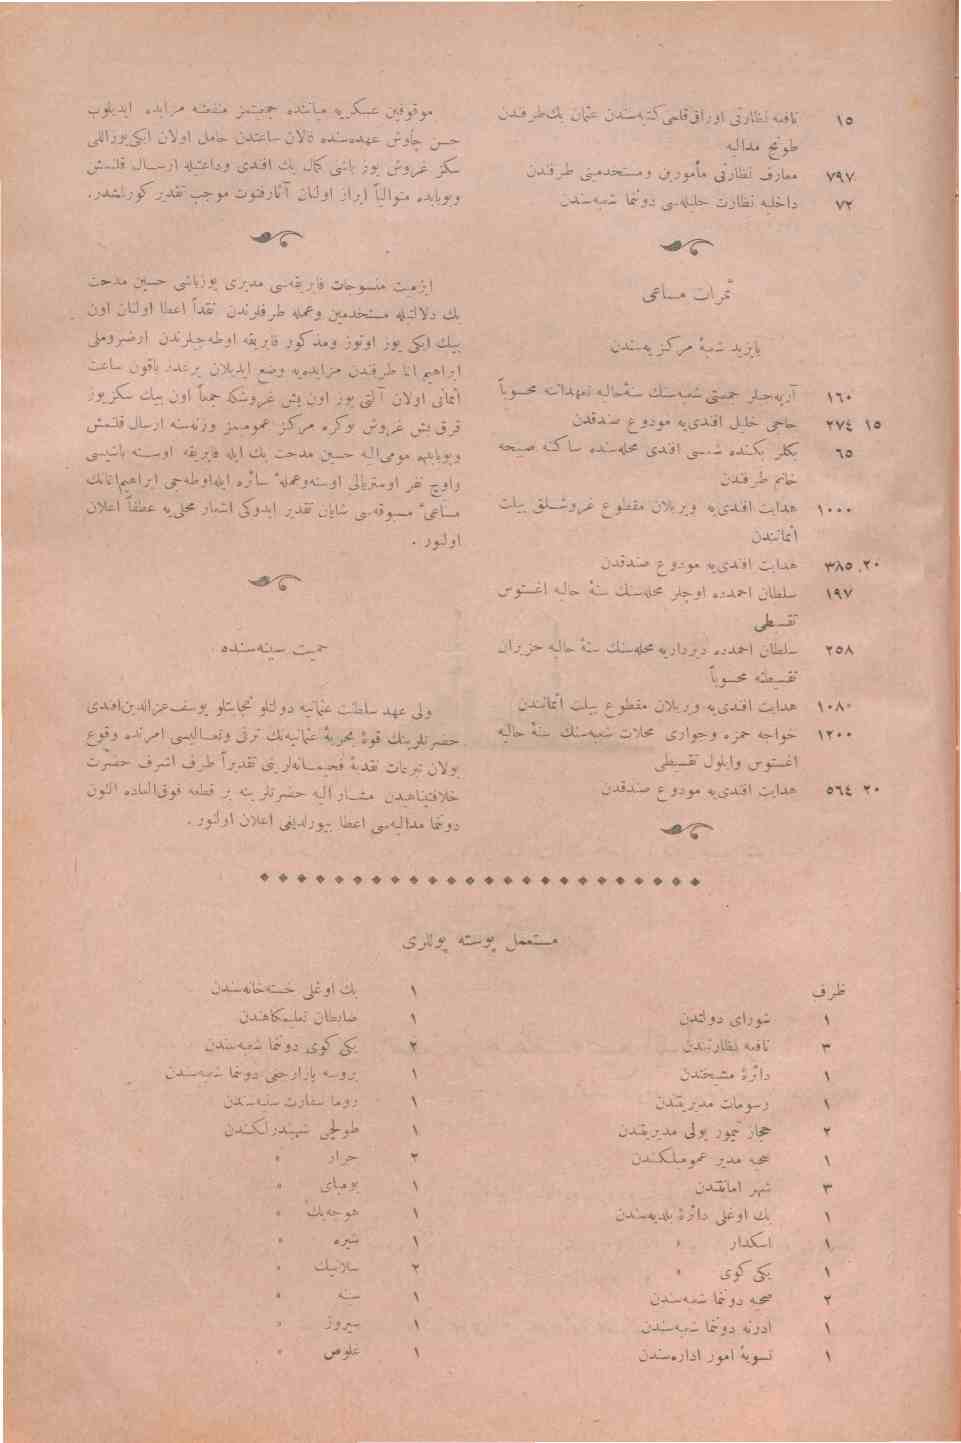 ١٥ نافعه نظارتی اوراق قلمی کتبه‌سندن عثمان بك طرفندن
طونج مدالیه
٧٩٧ معارف نظارتی مأمورین ومستخدمینی طرفندن
٧٢ داخلیه نظارت جلیله‌سی دونما شعبه‌سندن
ثمرات مساعی
بایزید شعبهٔ مرکزیه‌سندن
١٦٠ آرپه‌جیلر جمعیتی شعبه‌سنك سنهٔ حالیه تعهداتنه محسوباً
١٥ ٢٧٤ حاجی خلیل افندی‌یه مودوع صندقدن
٦٥ بکلر بکنده شمسی افندی محله‌سنده ساکنه صبیحه
خانم طرفندن
١٠٠٠ هدایت افندی‌یه ویریلان مقطوع غروشلق بیلت
اثماننندن
٢٠ ٣٨٥ هدایت افندی‌یه مودوع صندقدن
١٩٧ سلطان احمدده اوچلر محله‌سنك سنهٔ حالیه اغستوس
تقسیطی
٢٥٨ سلطان احمدده دیزداریه محله‌سنك سنهٔ حالیه حزیران
تقسیطنه محسوباً
١٠٨٠ هدایت افندی‌یه ویریلان مقطوع بیلت اثماننندن
١٢٠٠ خواجه حمزه وجواری محلات شعبه‌سنك سنهٔ حالیه
اغستوس وایلول تقسیطی
٢٠ ٥٦٤ هدایت افندی‌یه مودوع صندقدن
موقوفین عسکریه میاننده جمعیتمز منفعتنه مزایده ایدیلوب
حسن چاوش عهده‌سنده قالان ساعتدن حاصل اولان ایکی‌یوزاللی
سکز غروش یوز باشی کمال بك افندی وداعتیله ارسال قلنمش
وبوبابده متوالیاً ابراز اولنان آثارفتوت موجب تقدیر کورلمشدر.
ازمیت منسوجات فابریقه‌سی مدیری یوزباشی حسین مدحت
بك دلالتیله مستخدمین وعمله طرفلرندن نقداً اعطا اولنان اون
بیك ایکی یوز اوتوز ومذکور فابریقه اوطه‌جیلرندن ارضروملی
ابراهیم اغا طرفندن مزایده‌یه وضع ایدیلان برعدد باقون ساعت
اثمانی اولان آلتی یوز اون بش غروشکه جمعاً اون بیك سکز یوز
قرق بش غروش بوکره مرکز عمومیمز وزنه‌سنه ارسال قلنمش
وبوبابده مومی‌الیه حسین مدحت بك ایله فابریقه اوسته باشیسی
واوچ نفر اوستریالی اوسته‌وعملهٔ سائره ایله‌اوطه‌جی ابراهیم‌اغانك
مساعیٔ مسبوقه‌سی شایان تقدیر ایدوکی اشعار محلی‌یه عطفاً اعلان
اولنور .
حمیت سینه‌سنده
ولی عهد سلطنت عثمانیه دولتلو نجابتلو یوسف‌عزالدین‌افندی
حضرتلرینك قوهٔ بحریهٔ عثمانیه‌نك ترقی وتعالیسی امرنده وقوع
بولان تبرعات نقدیهٔ فخیمانه‌لرینی تقدیراً طرف اشرف حضرت
خلافتپناهیدن مشار الیه حضرتلرینه بر قطعه فوق‌العاده التون
دونما مدالیه‌سی اعطا بیورلدیغی اعلان اولنور .
مستعمل پوسته پوللری
ظرف
١ شورای دولتدن
٣ نافعه نظارتندن
١ دائرهٔ مشیختدن
١ رسومات مدیریتندن
٢ حجاز تیمور یولی مدیریتندن
١ صحیه مدیر عمومیلکندن
٣ شهر امانتندن
١ بك اوغلی دائرهٔ بلدیه‌سندن
١ اسکدار »
١ یکی کوی »
٢ صحیه دونما شعبه‌سندن
١ ادرنه دونما شعبه‌سندن
١ تسویهٔ امور اداره‌سندن
١ بك اوغلی خسته‌خانه‌سندن
١ ضابطان تعلیمکاهندن
٢ یکی کوی دونما شعبه‌سندن
١ بروسه پازارجغی دونما شعبه‌سندن
١ روما سفارت سنیه‌سندن
١ طولچی شهبندرلکندن
٢ حرار »
١ بومبای »
١ هوجه‌بك »
١ بتیره »
٢ سلانیك »
١ سنه »
١ سیروز »
١ غلوس »